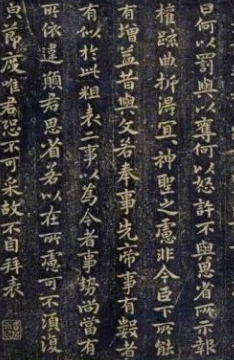 曰何以罰與以奪何以怒許不與思省所示報
權疏曲折得宜神聖之慮非今臣下所能
有增益昔與文若奉事先帝事有數者
有似於此粗表二事以為今者事勢尚當有
所依違願君思省若以在所慮可不須復
節度唯君恐不可采故不自拜表